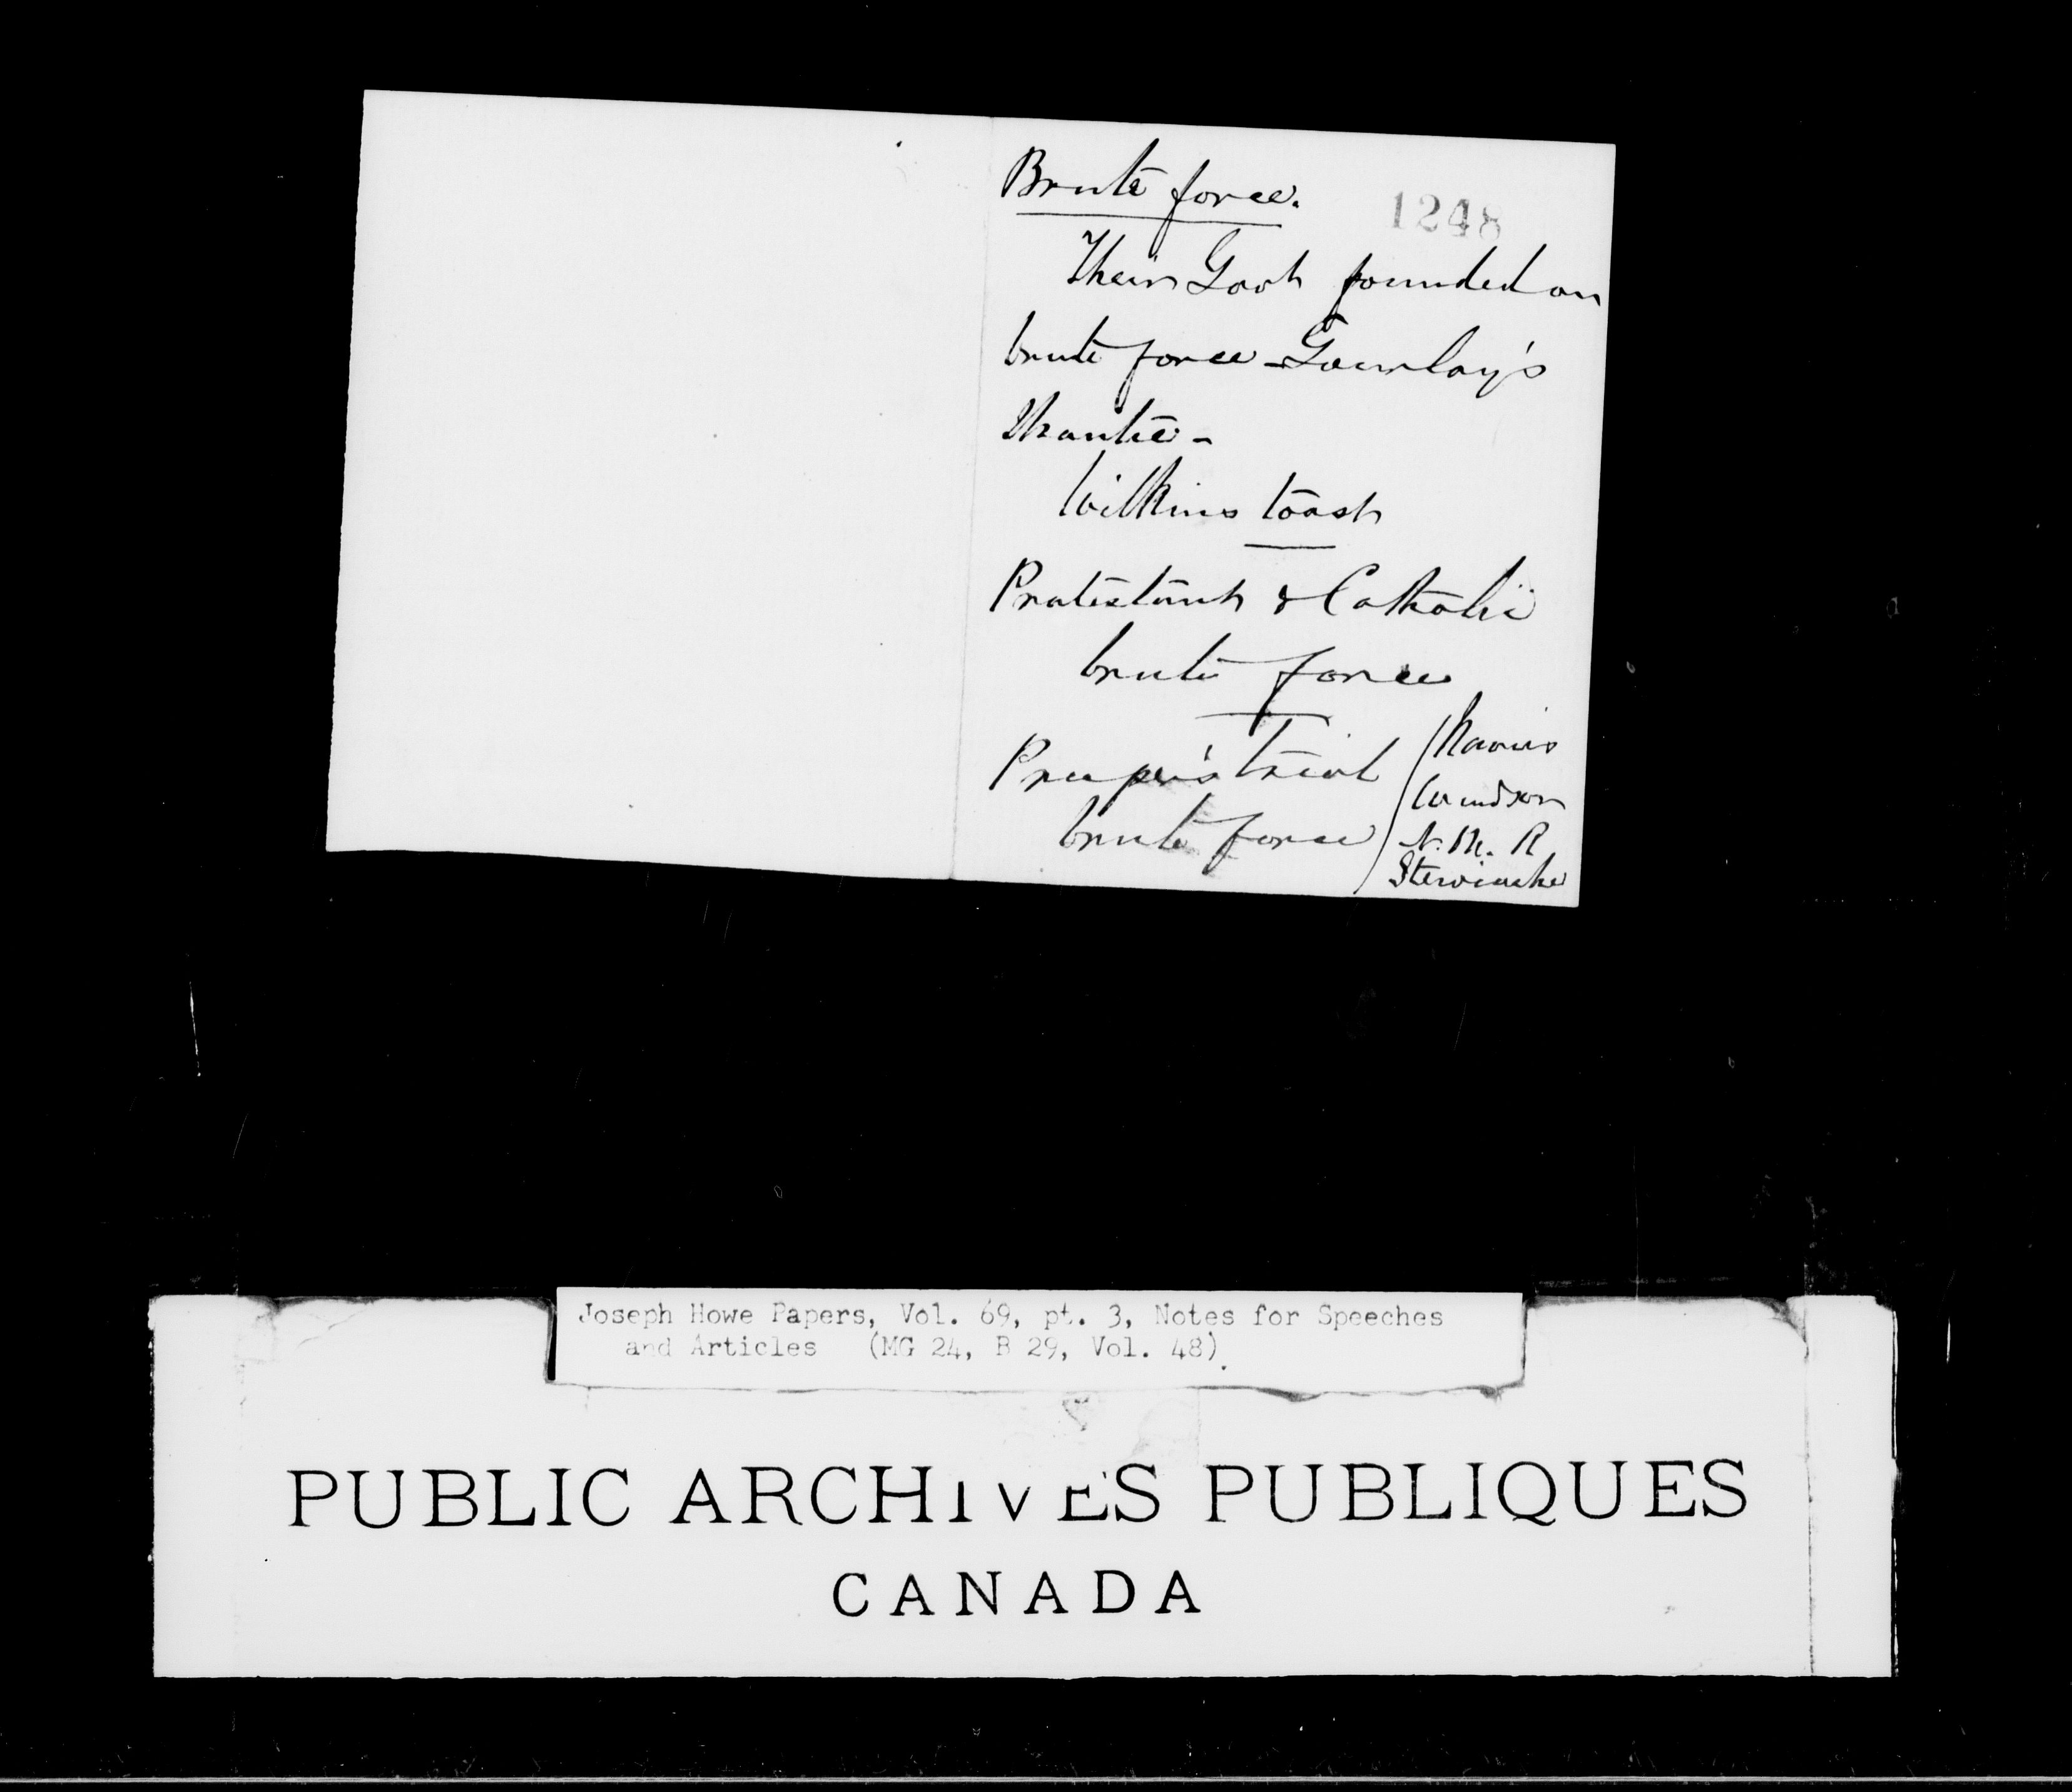 Brute force.
1248
Their Govt founded on
brute force - Gourlay's
Shantie -
Wilkins toast
Protestant & Catholic
brute force
Preeper's trial
brute force
Windsor
N. M. R
Joseph Howe Papers, Vol. 69, pt. 3, Notes for Speeches
and Articles (MG 24, B 29, Vol. 48).
PUBLIC ARCHIVES PUBLIQUES
CANADA